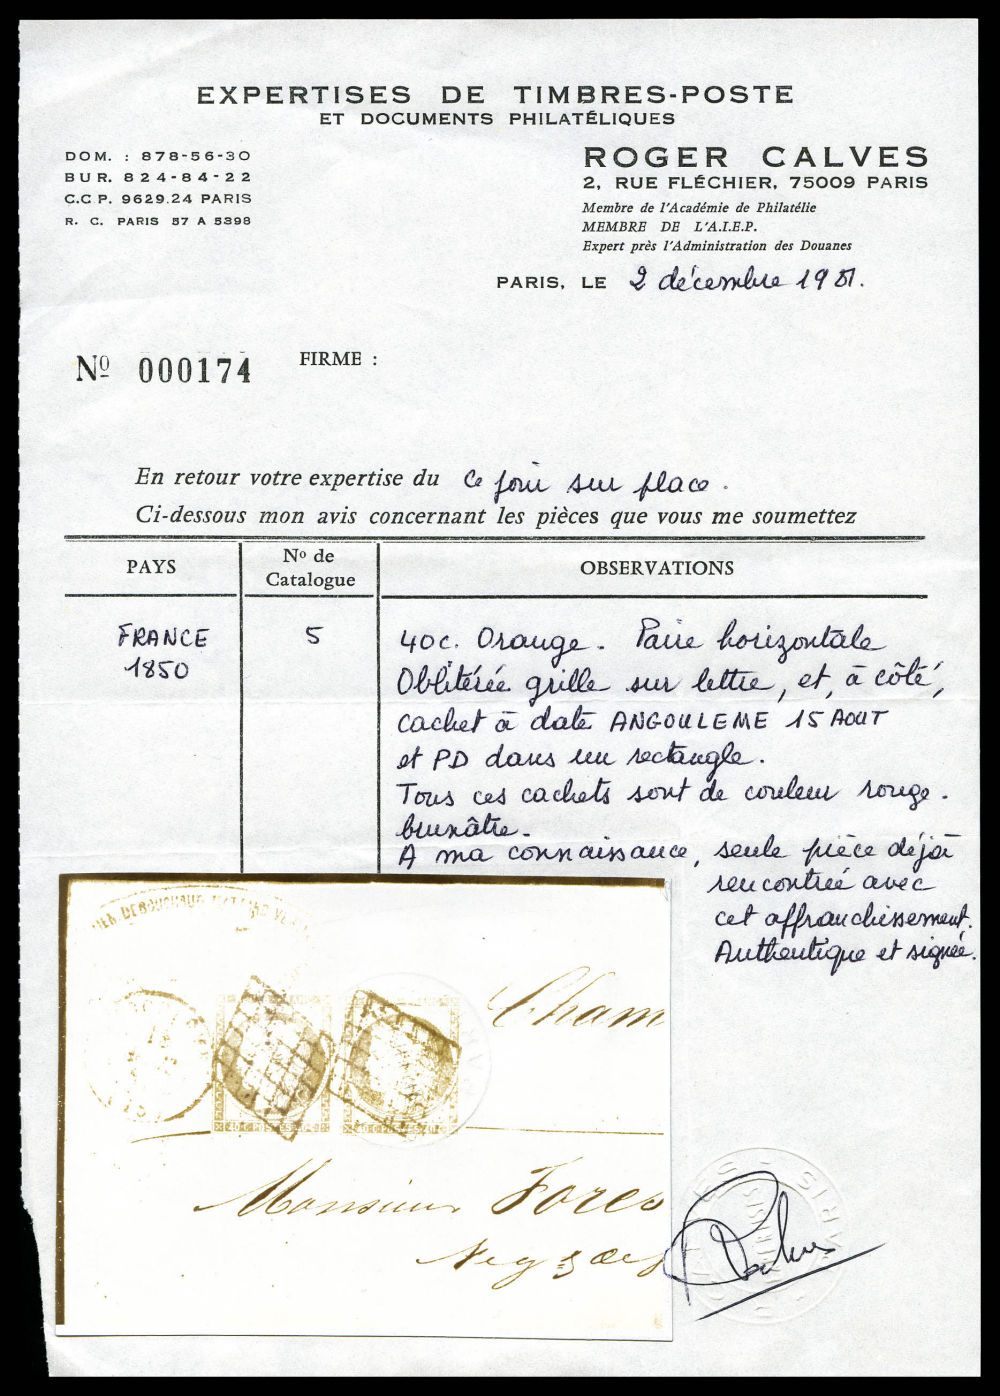 EXPERTISES DE TIMBRES-POSTE
ET DOCUMENTS PHILATÉLIQUES
DOM. : 878-56-30
BUR. 824-84-22
C.C.P. 9629.24 PARIS
R. C. PARIS 57 A 5398
ROGER CALVES
2, RUE FLÉCHIER, 75009 PARIS
Membre de l'Académie de Philatélie
MEMBRE DE L'A.I.E.P.
Expert près l'Administration des Douanes
PARIS, LE 2 décembre 1981.
Nº 000174
FIRME :
En retour votre expertise du Ce jour sur place.
Ci-dessous mon avis concernant les pièces que vous me soumettez
PAYS
Nº de
Catalogue
OBSERVATIONS
FRANCE
1850
5
40c. Orange. Paire horizontale
Oblitérée grille sur lettre, et, à côté,
cachet à date ANGOULEME 15 AOUT
et PD dans un rectangle.
Tous ces cachets sont de couleur rouge.
brunâtre.
A ma connaissance, seule pièce déjà
rencontrée avec
cet affranchissement.
Authentique et signée.
Cham
40 C POSTES 40 C
40 C POSTES 40 C
Monsieur